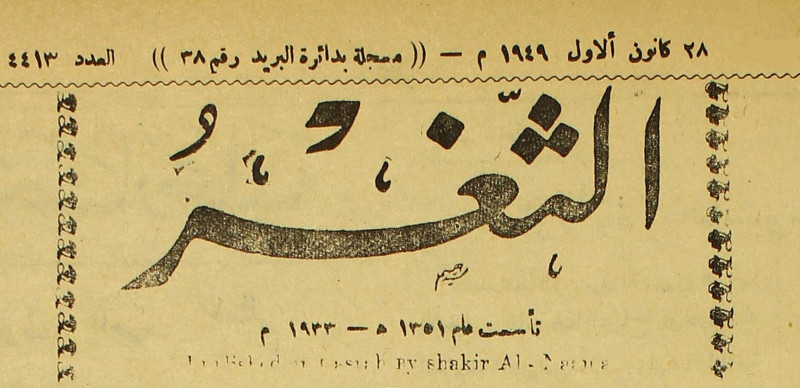 ٢٨ كانون ألاول ١٩٤٩ م — (( مسجلة بدائرة البريد رقم ٣٨ )) العدد ٤٤١٣
الثّغرُ
تأسست عام ١٣٥١ ه — ١٩٣٣ م
By shakir Al-